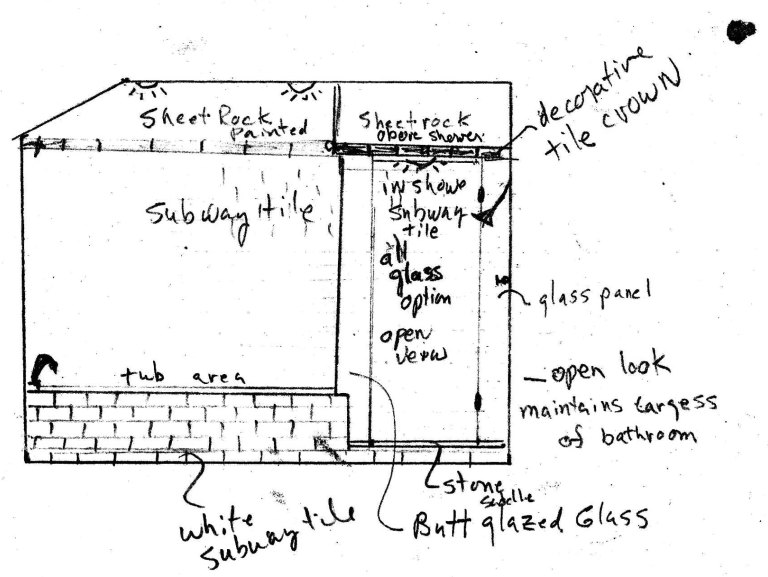 Sheet Rock
Painted
Sheetrock
above shower
decorative
tile crown
Subway tile
in shower
subway
tile
all
glass
option
open
view
glass panel
tub area
open look
maintains largess
of bathroom
stone
saddle
white
subway tile
Butt glazed Glass